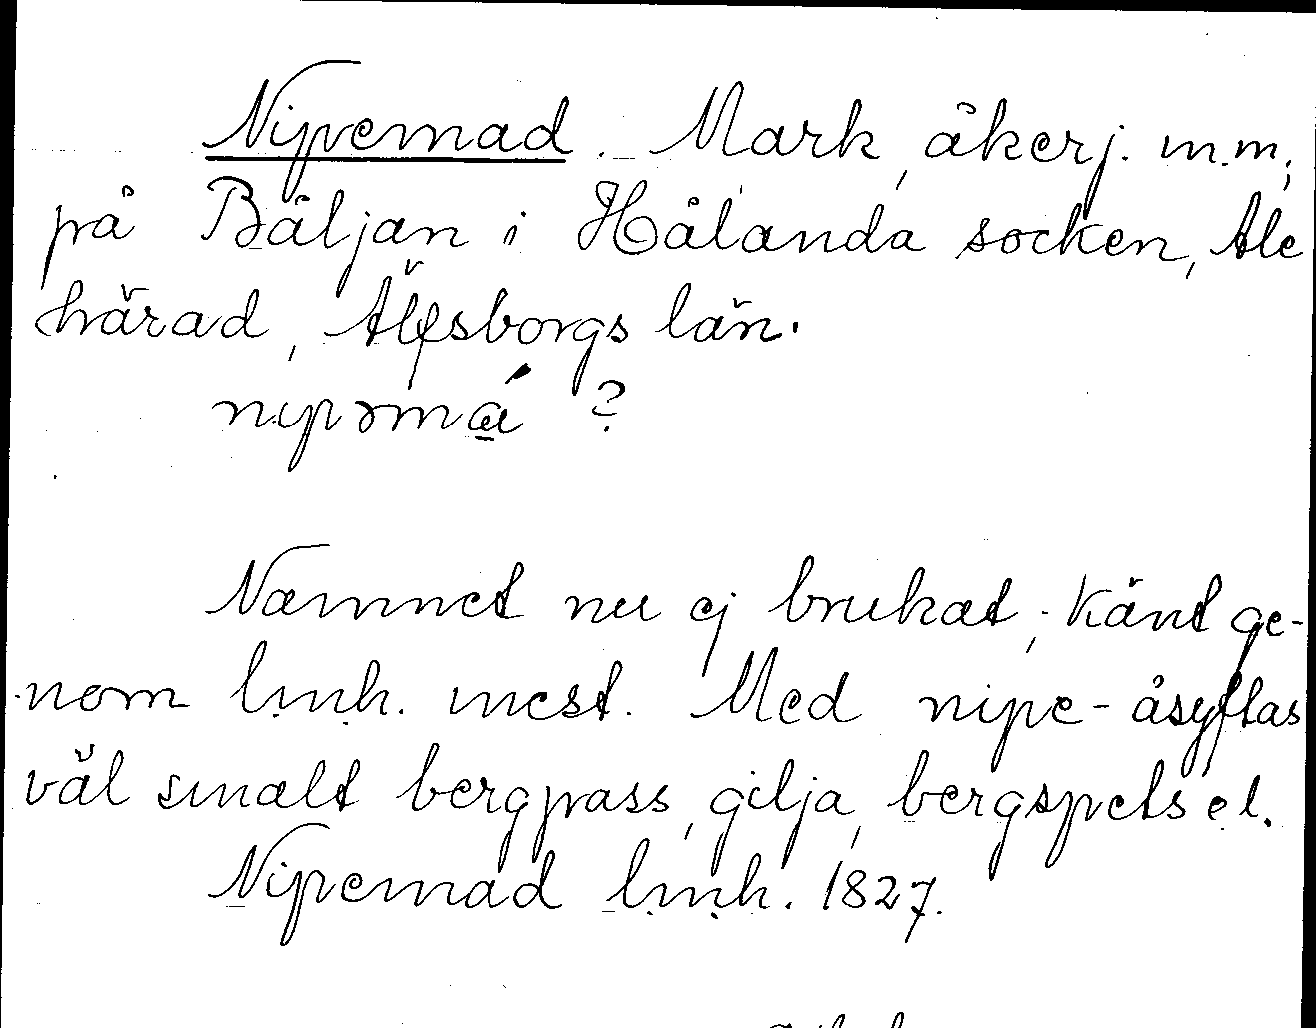 Nipemad. Mark, åkerj. m.m;
på Bäljan i Hålanda socken, Ale
härad, Älfsborgs län.
nypəmá ?
Namnet nu ej brukat; känt ge-
nom lmh. mest. Med nipe- åsyftas
väl smalt bergpass, gilja, bergspets el.
Nipemad lmh. 1827.